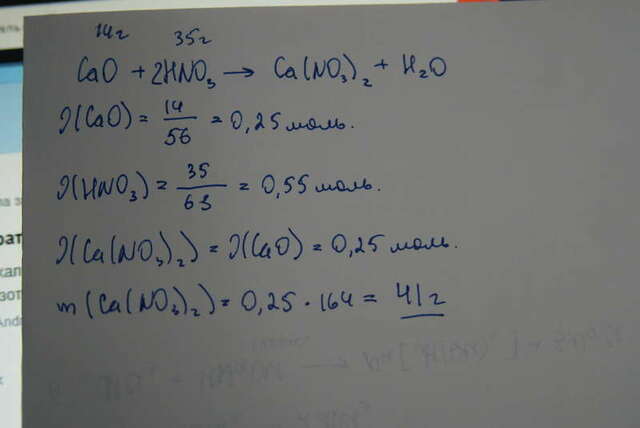 14г 35г
CaO + 2HNO₃ → Ca(NO₃)₂ + H₂O
ν(CaO) = 14/56 = 0,25 моль.
ν(HNO₃) = 35/63 = 0,55 моль.
ν(Ca(NO₃)₂) = ν(CaO) = 0,25 моль.
m(Ca(NO₃)₂) = 0,25 · 164 = 41г